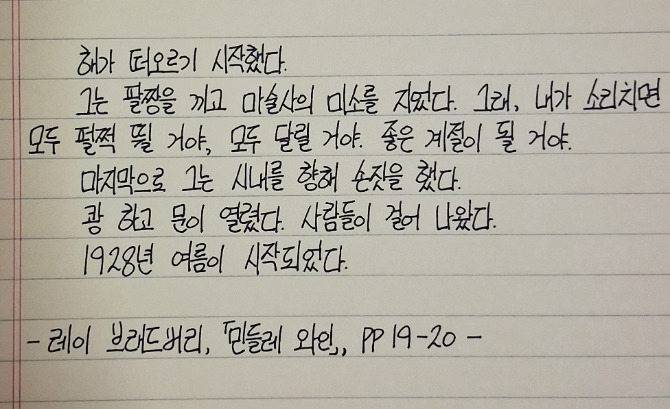 해가 떠오르기 시작했다.
그는 팔짱을 끼고 마술사의 미소를 지었다. 그래, 내가 소리치면
모두 펄쩍 뛸 거야, 모두 달릴 거야. 좋은 계절이 될 거야.
마지막으로 그는 시내를 향해 손짓을 했다.
쾅 하고 문이 열렸다. 사람들이 걸어 나왔다.
1928년 여름이 시작되었다.
- 레이 브래드버리, 「민들레 와인」, PP 19-20 -